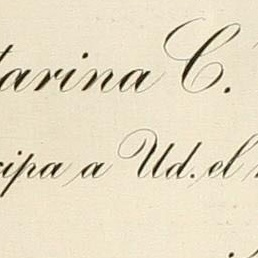 tarina C.
cipa a Ud. el